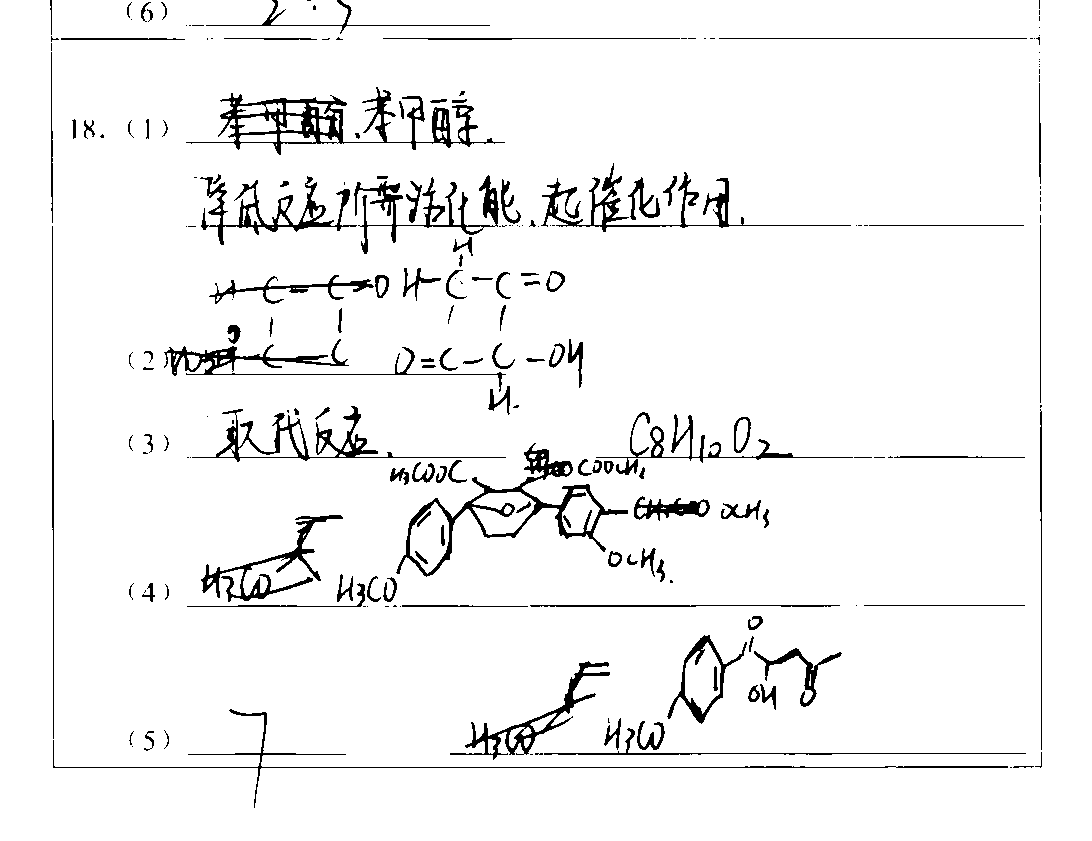 (6) 2:3
18. (1) 苯甲醇.
降低反应所需活化能、起催化作用.
H
H-C-C=O
(2) O=C-C-OH
H.
(3) 取代反应. C8H10O2
H3COOC COOCH3
OCH3
OCH3.
(4) H3CO
O
OH O
(5) 7 H3CO